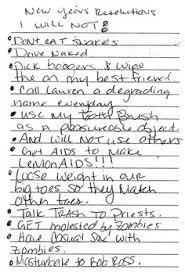 New Years Resolutions
I WILL NOT:
EAT SNAKES
Drive Naked
Pick boogers & Wipe
the on my best friend.
Call Lauren a degrading
name everyday
use my tooth Brush
as a pleasureable object.
And Will NOT use others
Get AIDS to Make
LemonAIDS!!!
Loose weight in our
big toes so they Match
other toes.
Talk Trash to Priests.
Get molested by Zombies
Have Casual Sex with
Zombies.
Masturbate to Bob Ross.